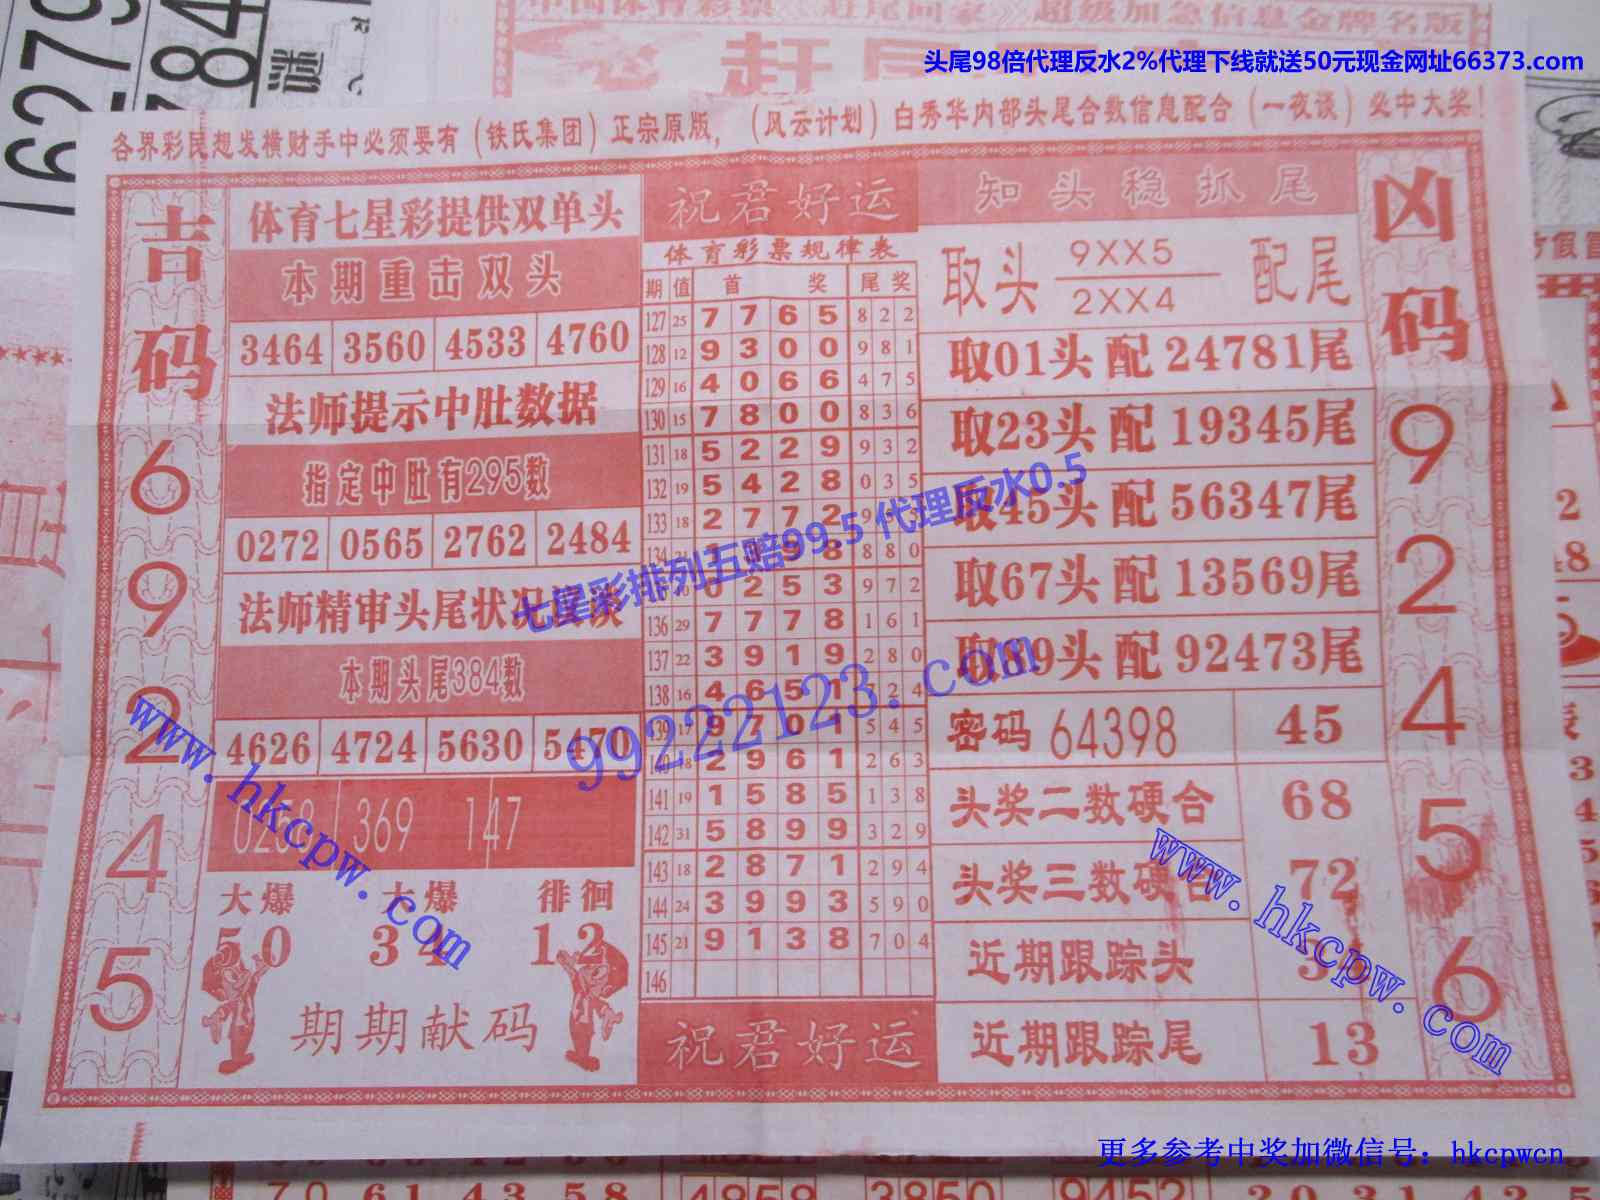 中国体育彩票《赶尾回家》超级加急信息金牌名版
赶尾
头尾98倍代理反水2%代理下线就送50元现金网址66373.com
6279
784
各界彩民想发横财手中必须要有（铁氏集团）正宗原版，（风云计划）白秀华内部头尾合数信息配合（一夜谈）必中大奖！
吉码
6
9
2
4
5
体育七星彩提供双单头
本期重击双头
3464 3560 4533 4760
法师提示中肚数据
指定中肚有295数
0272 0565 2762 2484
法师精审头尾状况
本期头尾384数
4626 4724 5630 5470
0258 369 147
大爆 大爆 徘徊
50 34 12
期期献码
祝君好运
体育彩票规律表
期 值 首 奖 尾 奖
127 25 7 7 6 5 8 2 2
128 12 9 3 0 0 9 8 1
129 16 4 0 6 6 4 7 5
130 15 7 8 0 0 8 3 6
131 18 5 2 2 9 9 3 2
132 19 5 4 2 8 0 3 5
133 18 2 7 7 2 9
134 9 8 8 8 0
0 2 5 3 9 7 2
136 29 7 7 7 8 1 6 1
137 22 3 9 1 9 2 8 0
138 16 4 6 5 1 2 4
139 17 9 7 0 1 5 4 5
140 18 2 9 6 1 2 6 3
141 19 1 5 8 5 1 3 8
142 31 5 8 9 9 3 2 9
143 18 2 8 7 1 2 9 4
144 24 3 9 9 3 5 9 0
145 21 9 1 3 8 7 0 4
146
祝君好运
知头稳抓尾
取头 9XX5 配尾
2XX4
取01头配24781尾
取23头配19345尾
取45头配56347尾
取67头配13569尾
取89头配92473尾
密码 64398 45
头奖二数硬合 68
头奖三数硬合 72
近期跟踪头
近期跟踪尾 13
凶码
9
2
4
5
6
七星彩排列五赔99.5 代理反水0.5
99222123.com
www.hkcpw.com
www.hkcpw.com
更多参考中奖加微信号：hkcpwcn
70 61 43 58 4858 3850 9452